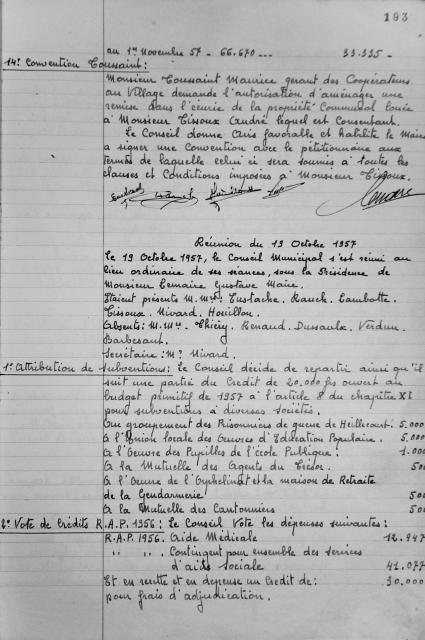 193
au 1er Novembre 57 - 66.670 --- 33.335 -
14° Convention Toussaint:
Monsieur Toussaint Maurice gerant des Coopérateurs
au Village demande l'autorisation d'aménager une
remise dans l'écurie de la propriété Communal louée
à Monsieur Tissoux André lequel est Consentant.
Le Conseil donne Avis favorable et habilite le Maire
a signer une Convention avec le pétitionnaire aux
termes de laquelle celui ci sera soumis à toutes les
clauses et Conditions imposées à Monsieur Tissoux.
Réunion du 19 Octobre 1957
Le 19 Octobre 1957, le Conseil Municipal s'est réuni au
lieu ordinaire de ses séances, sous la Présidence de
Monsieur Lemaire Gustave Maire.
Etaient présents M.Mrs. Eustache. Rauch. Lambotte.
Tissoux. Nivard. Houillon.
Absents: M.Mrs. Thiéry. Renaud. Dussaulx. Verdun.
Barbesant.
Secrétaire: Mr Nivard.
1° Attribution de subventions: Le Conseil décide de repartir ainsi qu'il
suit une partie du Credit de 20.000 frs ouvert au
budget primitif de 1957 à l'article 8 du chapitre XI
pour subventions à diverses sociétés.
Au groupement des Prisonniers de guerre de Heillecourt. 5.000
A l'Union locale des Oeuvres d'Education Populaire. 5.000
A l'Oeuvre des Pupilles de l'école Publique! 1.000
A la Mutuelle des Agents du Trésor. 500
A l'Oeuvre de l'Orphelinat et la maison de Retraite
de la Gendarmerie 500
A la Mutuelle des Cantonniers 500
2° Vote de Crédits R.A.P. 1956: Le Conseil Vote les dépenses suivantes:
R.A.P. 1956. Aide Médicale 12.947
" " . Contingent pour ensemble des services
d'aide sociale 41.077
Et en recette et en depense un Credit de: 30.000
pour frais d'adjudication.